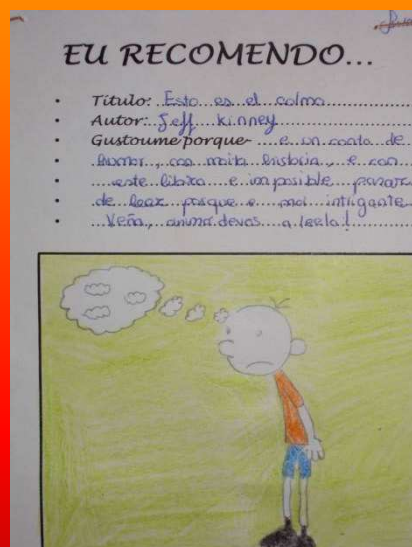 EU RECOMENDO...
Título: Esto es el colmo
Autor: Jeff Kinney
Gustoume porque e un conto de
humor, con moita historia, e con
este libro e imposible parar
de lear porque e moi intrigante
Veña, animádevos a leelo!